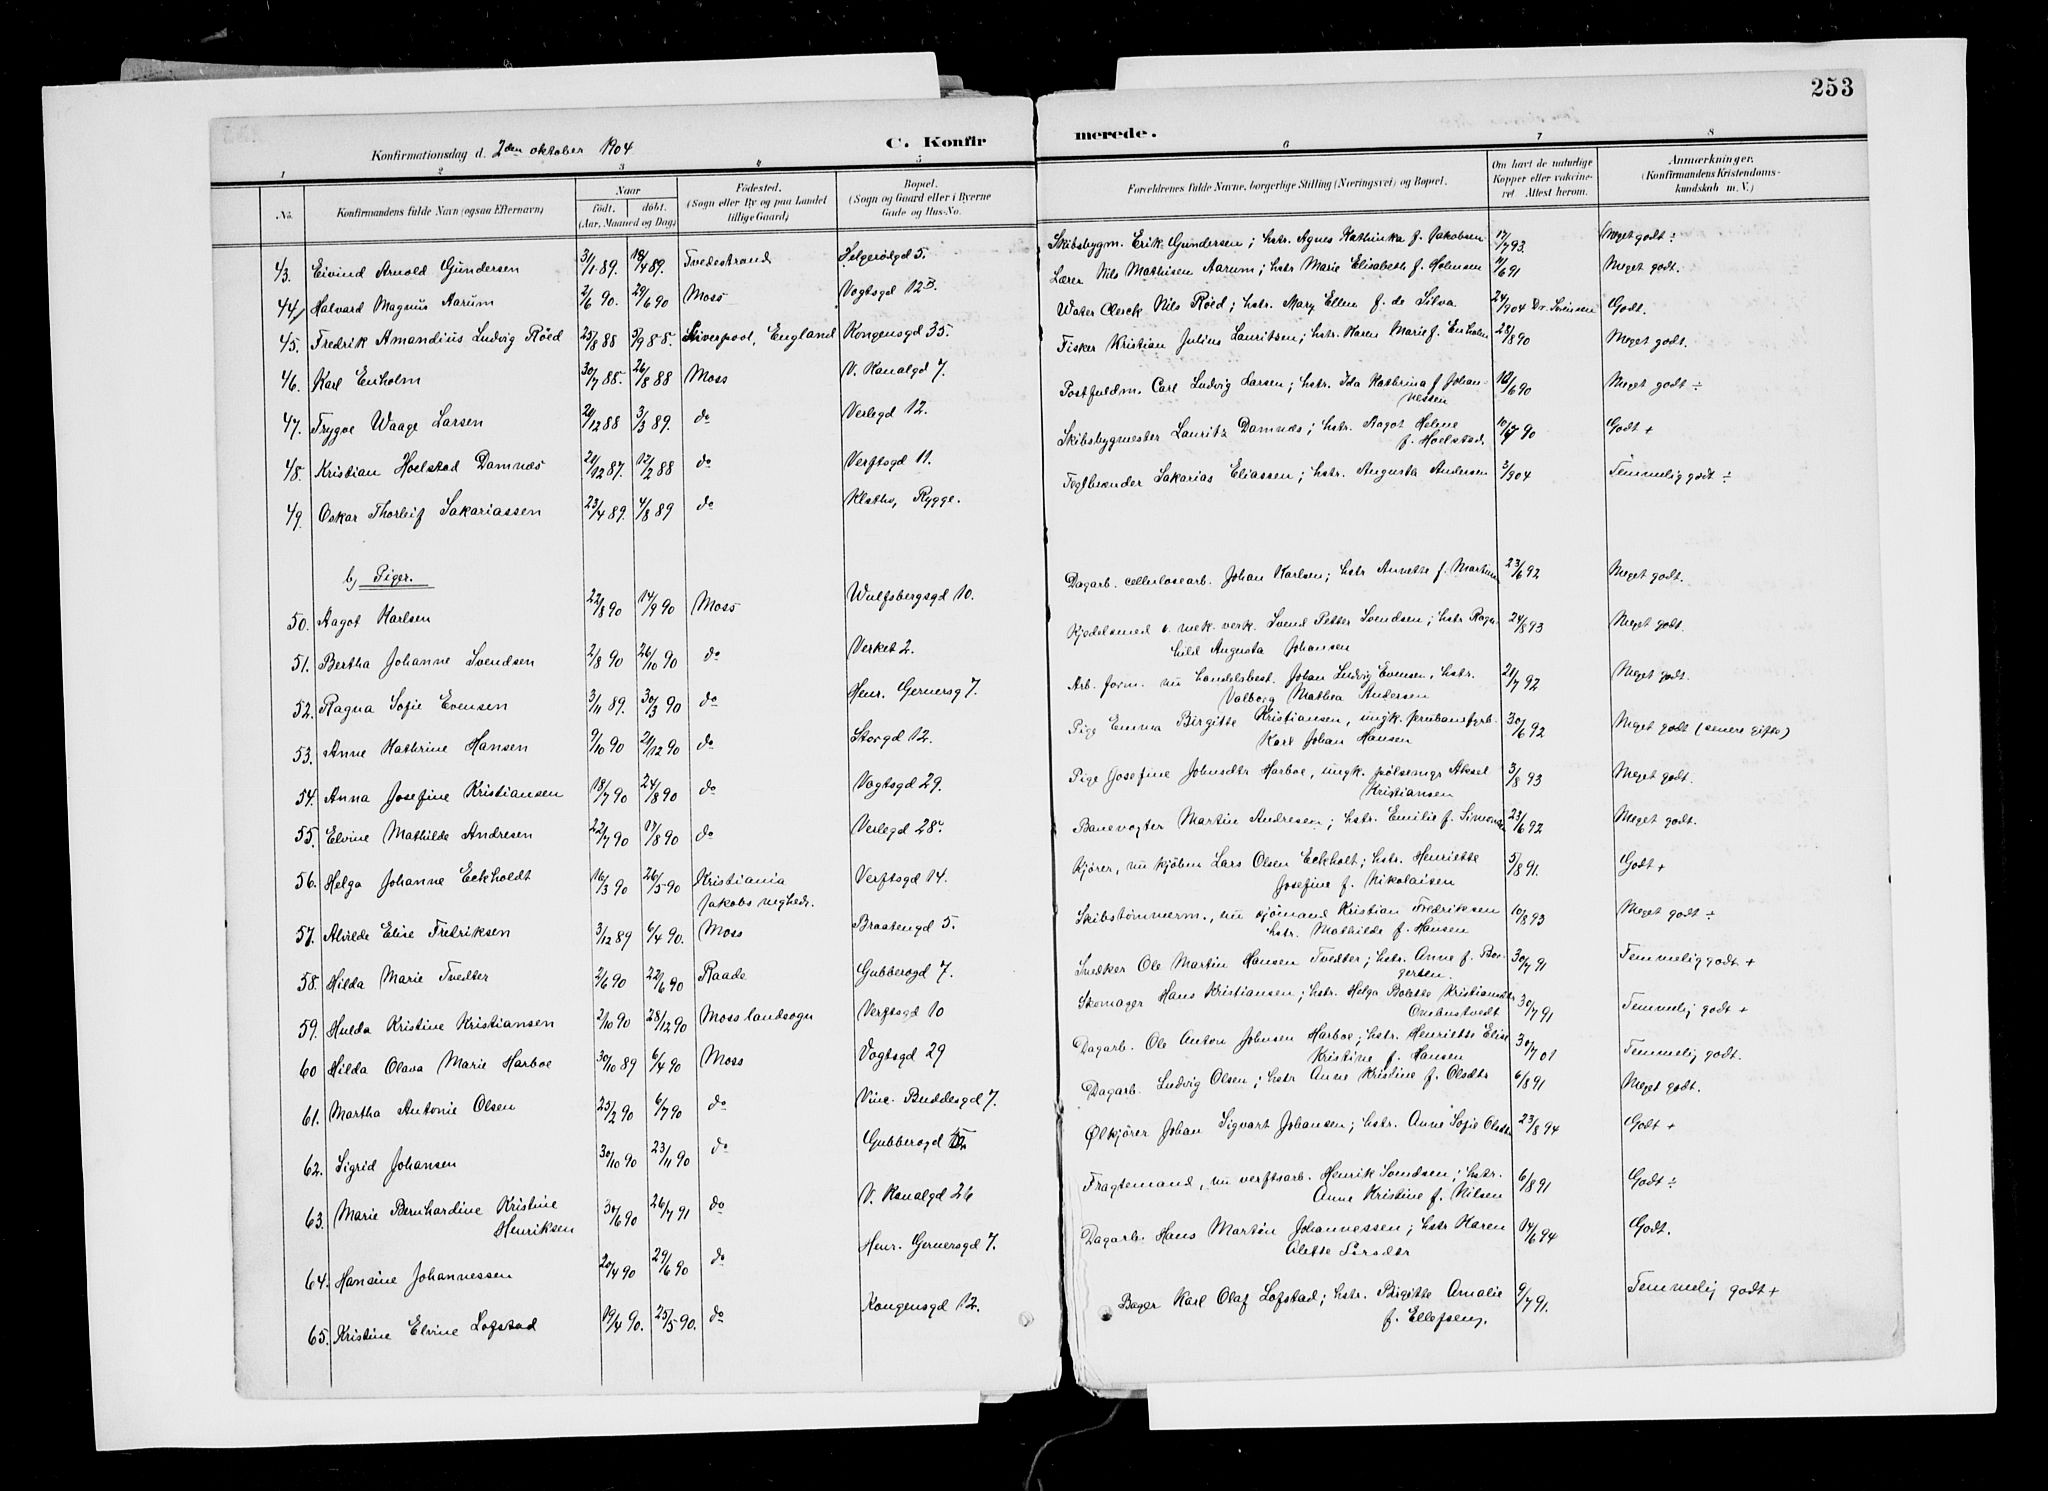 253
Konfirmationsdag d. 2den oktober 1904 C. Konfirmerede.
1 2 3 4 5 6 7 8
No. Konfirmandens fulde Navn (ogsaa Efternavn) Naar født. døbt. (Aar, Maaned og Dag) Fødested. (Sogn eller By og paa Landet tillige Gaard) Bopæl. (Sogn og Gaard eller i Byerne Gade og Hus-No. Forældrenes fulde Navne, borgerlige Stilling (Næringsvei) og Bopæl. Om havt de naturlige Kopper eller vakcineret. Attest herom. Anmærkninger. (Konfirmandens Kristendomskundskab m. V.)
43. Eivind Arnold Gundersen 31/1 89. 18/4 89. Tvedestrand Helgerødgd 5. Skibsbygm. Erik Gundersen; hstr. Agnes Kathinka f. Jakobsen 17/7 93 Meget godt ÷
44. Halvard Magnus Aarum 2/6 90. 29/6 90 Moss Vogtsgd 12B. Lærer Nils Mathisen Aarum; hstr Marie Elisabeth f. Holmsen 11/6 91 Meget godt.
45. Fredrik Amandius Ludvig Röed 25/8 88 5/9 88. Liverpool, England Kongensgd 35. Water Clerck Nils Röed; hstr. Mary Ellen f. de Silva 24/9 04 Dr. Sörensen Godt.
46. Karl Enholm 30/7 88. 26/8 88 Moss V. Kanalgd 7. Fisker Kristian Julius Lauritsen; hstr. Karen Marie f. Enholm 28/8 90 Meget godt.
47. Trygve Waage Larsen 21/12 88 3/3 89. do Verlegd 12. Postfuldm. Carl Ludvig Larsen; hstr. Ida Kathrina f Johan-
nessen 12/6 90 Meget godt ÷
48. Kristian Hoelstad Damnæs 21/12 87. 12/2 88 do Verftsgd 11. Skibsbygmester Lauritz Damnæs; hstr. Aagot Helene
f. Hoelstad. 10/7 90 Godt +
49. Oskar Thorleif Sakariassen 23/4 89. 4/8 89 do Rygge. Teglbrænder Sakarias Eliassen; hstr. Augusta Andersen 3/9 04 Temmelig godt ÷
b) Piger.
50. Aagot Karlsen 22/8 90 14/9 90 Moss Wulfsbergsgd 10. Dagarb. cellulosearb. Johan Karlsen; hstr Annette f. Martinsen 23/6 92 Meget godt.
51. Bertha Johanne Svendsen 2/8 90 26/10 90 do Verket 2. Kjedelsmed v. mek. verk. Svend Petter Svendsen; hstr Ragn-
hild Augusta Johansen 24/8 93 Meget godt.
52. Ragna Sofie Evensen 3/11 89. 30/3 90 do Henr. Gernersg 7. Arb. form. nu handelsbest. Johan Ludvig Evensen, hstr.
Valborg Mathea Andersen 21/7 92 Meget godt.
53. Anne Kathrine Hansen 9/10 90 21/12 90 do Storgd 12. Pige Emma Birgitte Kristiansen, ungk.
Karl Johan Hansen 30/6 92 Meget godt (senere gifte)
54. Anna Josefine Kristiansen 18/7 90 24/8 90 do Vogtsgd 29. Pige Josefine Johnsdtr Harboe, ungk. pølsemgr Aksel
Kristiansen 3/8 93 Meget godt.
55. Elvine Mathilde Andresen 22/7 90 17/8 90 do Verlegd 28. Banevogter Martin Andresen; hstr. Emilie f. Simensen 23/6 92 Meget godt.
56. Helga Johanne Eckholdt 16/3 90 26/5 90 Kristiania
Jakobs mghedr. Verftsgd 14. Kjører, nu kjøbm Lars Olsen Eckholt; hstr. Henriette
Josefine f. Nikolaisen 5/8 91. Godt +
57. Alvilde Elise Fredriksen 3/12 89 6/4 90. Moss Braatengd 5. Skibstømmerm., nu sjømand Kristian Fredriksen
hstr. Mathilde f. Hansen 10/8 93 Meget godt ÷
58. Hilda Marie Tvedter 2/6 90 22/6 90 Raade Gubberogd 7. Snedker Ole Martin Hansen Tvedter; hstr. Anne f. Bor-
gersen. 30/7 91 Temmelig godt +
59. Hulda Kristine Kristiansen 2/10 90 28/12 90 Moss landsogn Verftsgd 10 Skomager Hans Kristiansen; hstr. Helga Bolette Kristiansdtr
30/7 91 Temmelig godt +
60 Hilda Olava Marie Harboe 30/10 89 6/4 90 Moss Vogtsgd 29 Dagarb. Ole Anton Johnsen Harboe; hstr. Henriette Elise
Kristine f. Hansen 30/7 01 Temmelig godt.
61. Martha Antonie Olsen 25/2 90 6/7 90 do Vinc. Buddesgd 7. Dagarb. Ludvig Olsen; hstr Anne Kristine f. Olsdtr 6/8 91 Meget godt.
62. Sigrid Johansen 30/10 90 23/11 90 do Gubberogd Ølkjører Johan Sigvart Johansen; hstr. Anne Sofie Olsdtr 23/8 94 Godt +
63. Marie Bernhardine Kristine
Henriksen 30/6 90 26/7 91 do V. Kanalgd 26 Fragtemand, nu verftsarb. Henrik Svendsen; hstr.
Anne Kristine f. Nilsen 6/8 91 Godt ÷
64. Hansine Johannessen 20/4 90 29/6 90 do Henr. Gernersgd 7. Dagarb. Hans Martin Johannessen; hstr Karen
Alette Larsdtr 14/6 94 Godt.
65. Kristine Elvine Lofstad 19/4 90. 25/5 90. do Kongensgd 12. Bager Karl Olaf Lofstad; hstr. Birgitte Amalie
f. Ellefsen. 9/7 91. Temmelig godt +